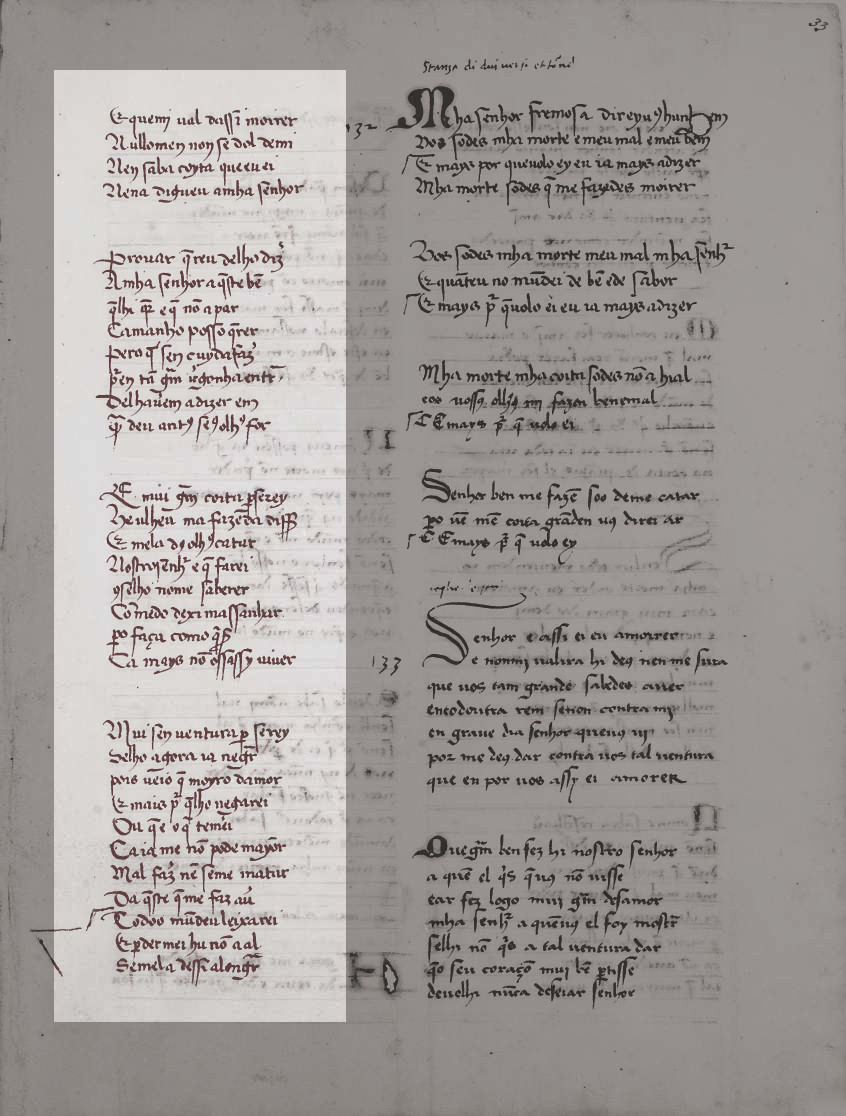 33
Stanza di diuersi
E quemj ual dassi moirer
Nullomen non se dol demi
Nen saba coyta que eu ei
Nena digueu amha senhor
Prouar q̄reu delho diz̄
A mha senhor a q̄ste bē
q̄lhi q̄r e q̄ nō a par
Camanho posso q̄rer
Pero q̄ sen cuydafaz
p̄en tā gm̄ ūgonha entr̄
Delhauēm adizer em
q̄ deu ant9 se9 olh9 for
E mui gm̄ coita p̄serey
Ve ulheu ma fazēda
E mela d9 olh9 catar
Nostro senh̄r e q̄ farei
9selho nome saberer
Cō medo dexi massanhar
po faça como
Ca mays nō ossassy uiuer
Mui sen uentura p serey
Delho agora ia negr̄
pois uēio q̄ moyro damor
E mais pr̄ q̄lho negarei
Ou q̄ e o q̄ temēi
Ca ia me nō pode mayōr
Mal faz̄ nē seme matar
Da q̄ste q̄me faz au
Todos mūdeu leixarei
E p̄dermei hu nō a al
Semela dessi alongr̄
132
Mha senhor fremosa direyu9 hunha rem
Vos sodes mha morte e meu mal e meu bem
E mays por queuolo ey eu ia mays adizer
Mha morte sodes q̄ me fazedes moirer
Vos sodes mha morte meu mal mha senh̄r
E quāteu no mūdei de bē ede sabor
E mays pr̄ q̄uolo ei eu ia mays adizer
Mha morte mha coita sodes nō a hi al
eos uoss9 olh9 mi fazen ben e mal
E mays pr̄ q̄ uolo ei
Senhor ben me fazē soo deme catar
po uē mē coita grāden u9 direi ar
E mays pr̄ q̄ uolo ey
133
Senhor e assi ei eu amorrer
E nonmj ualira hi de9 nen me sura
que uos tam grande sabedes auer
eneodoutra rem senon contra mj
en graue dia senhor queu9 uj
por me de9 dar contra uos tal uentura
que en por uos assy ei amorer
Que gm̄ ben fez hi nostro senhor
a quē el q̄s q̄u9 nō uisse
ear fez logo mui gm̄ desamor
mha senh̄r a quēu9 el foy mostr̄
selhi nō q̄s a tal uentura dar
q̄o seu coraçō muj bē p̄tisse
deuolhi nūca deseiar senhor